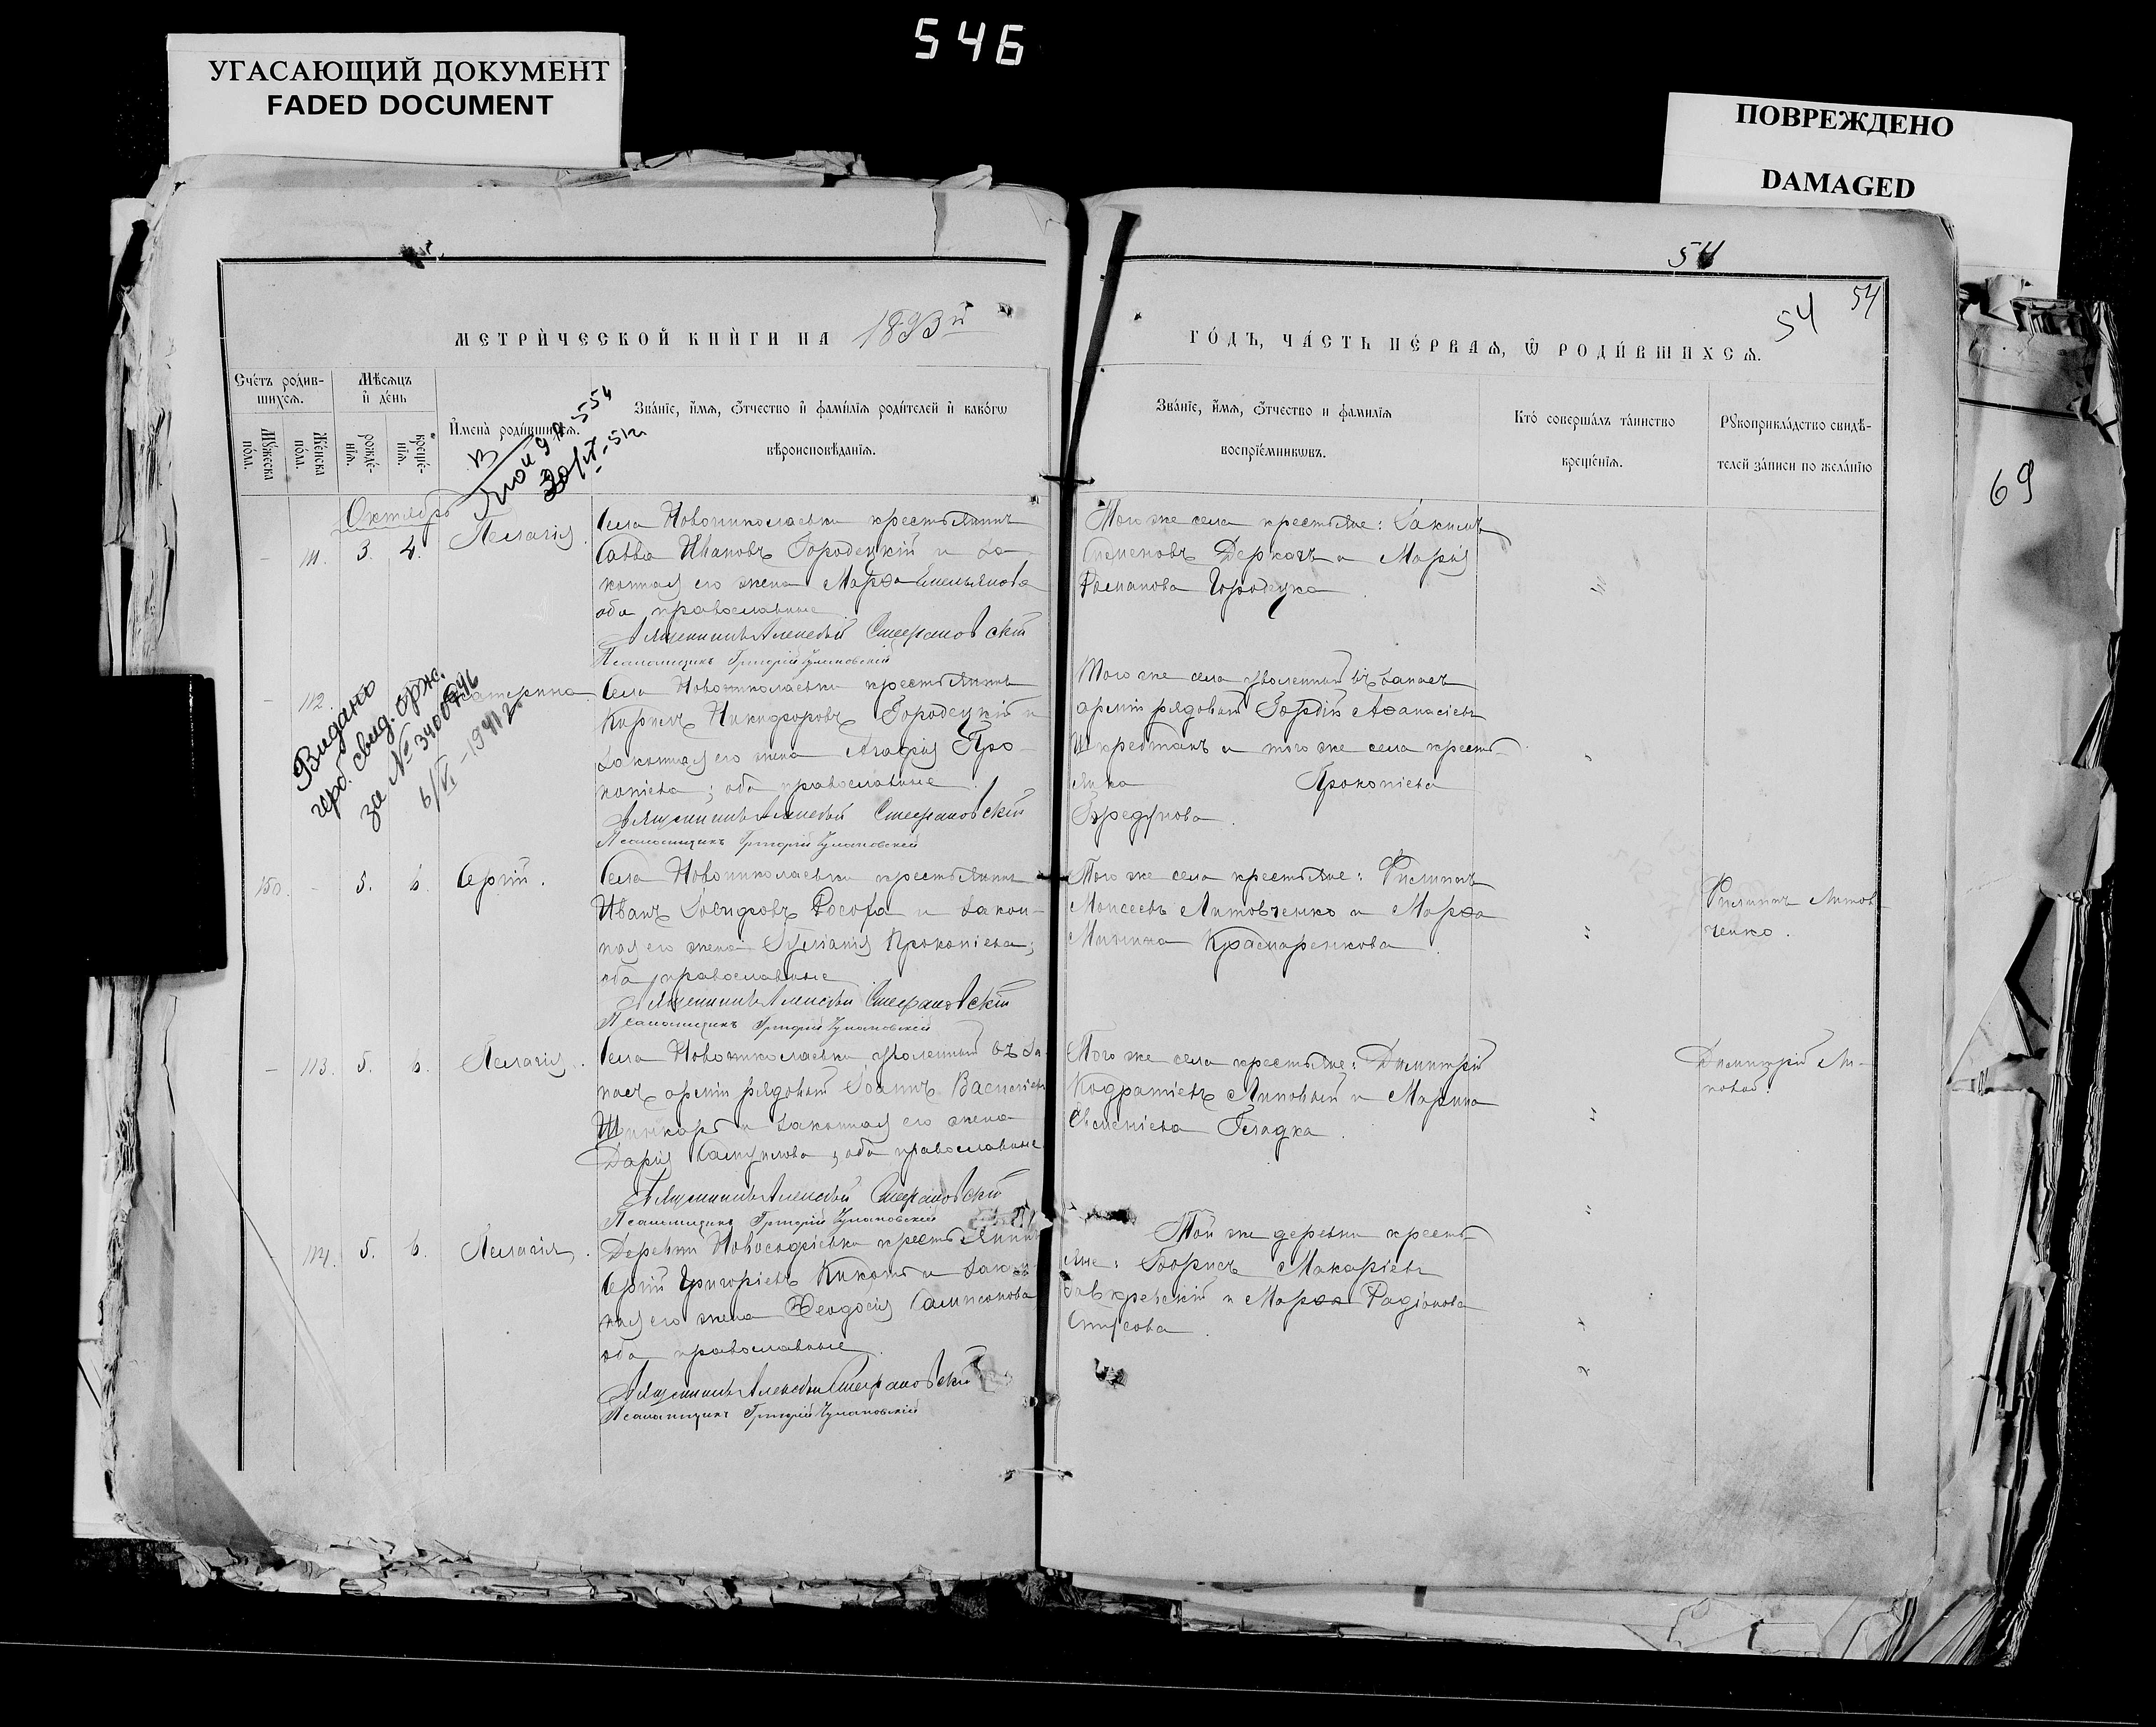 546
УГАСАЮЩИЙ ДОКУМЕНТ
FADED DOCUMENT
ПОВРЕЖДЕНО
DAMAGED
54
54
54
69
МЕТРИ́ЧЕСКОЙ КНИ́ГИ НА 1893й
ГО́ДЪ, ЧА́СТЬ ПЕ́РВАѦ, Ѽ РОДИ́ВШИХСѦ.
Сче́тъ роди́в-
шихсѧ.
Мѣ́сѧцъ
и҆ де́нь
Мꙋ́жеска
по́ла.
Же́нска
по́ла.
рожде́-
нїѧ.
креще́-
нїѧ.
И҆мена̀ роди́вшихсѧ.
Зва́нїе, и҆́мѧ, ѻ҆́тчество и҆ фами́лїѧ роди́телей и҆ како́гѡ
вѣроисповѣ́данїѧ.
Зва́нїе, и҆́мѧ, ѻ҆́тчество и фами́лїѧ
воспрїе́мникѡвъ.
Кто̀ соверша́лъ та́инство
креще́нїѧ.
Рꙋкоприкла́дство свидѣ́-
телей за́писи по жела́нїю
Октябрь
111. 3. 4. Пелагія.
Села Новониколаевки крестьянинъ
Савва Ивановъ Городецкій и за-
конная его жена Марѳа Емельянова
оба православные
Священникъ Алексѣй Стефановскій
Псаломщикъ Григорій
Того же села крестьяне: Іакимъ
Семеновъ Деркачъ и Марія
Романова Городецка
Видано
свид.
за №
6/VI - 1941
112. Екатерина
Села Новониколаевки крестьянинъ
Кириллъ Никифоровъ Городецкій и
законная его жена Агафія Про-
копіева; оба православные.
Священникъ Алексѣй Стефановскій
Псаломщикъ Григорій
Того же села уволенный въ запасъ
арміи рядовой Гордій Аѳанасіевъ
и того же села кресть-
янка Прокопіева
150. - 5. 6. Сергій.
Села Новониколаевки крестьянинъ
Иванъ Іосифовъ и закон-
ная его жена Іуліанія Прокопіева;
оба православные
Священникъ Алексѣй Стефановскій
Псаломщикъ Григорій
Того же села крестьяне: Филиппъ
Моисеевъ Литовченко и Марѳа
Минина
Филиппъ Литов-
ченко.
- 113. 5. 6. Пелагія.
Села Новониколаевки уволенный въ за-
пасъ арміи рядовой Іоаннъ Василіевъ
Шинкарь и законная его жена
Дарія Самуилова; оба православные
Священникъ Алексѣй Стефановскій
Псаломщикъ Григорій
Того же села крестьяне: Димитрій
Кодратіевъ Липовый и Марина
Гладка.
Димитрій Ли-
повой.
- 114. 5. 6. Пелагія.
Деревни Новософіевки крестьянинъ
Сергій Григоріевъ Кикоть и закон-
ная его жена Ѳеодосія Сампсонова
оба православные.
Священникъ Алексѣй Стефановскій
Псаломщикъ Григорій
Той же деревни кресть-
яне: Борисъ Макаріевъ
и Марѳа Радіонова